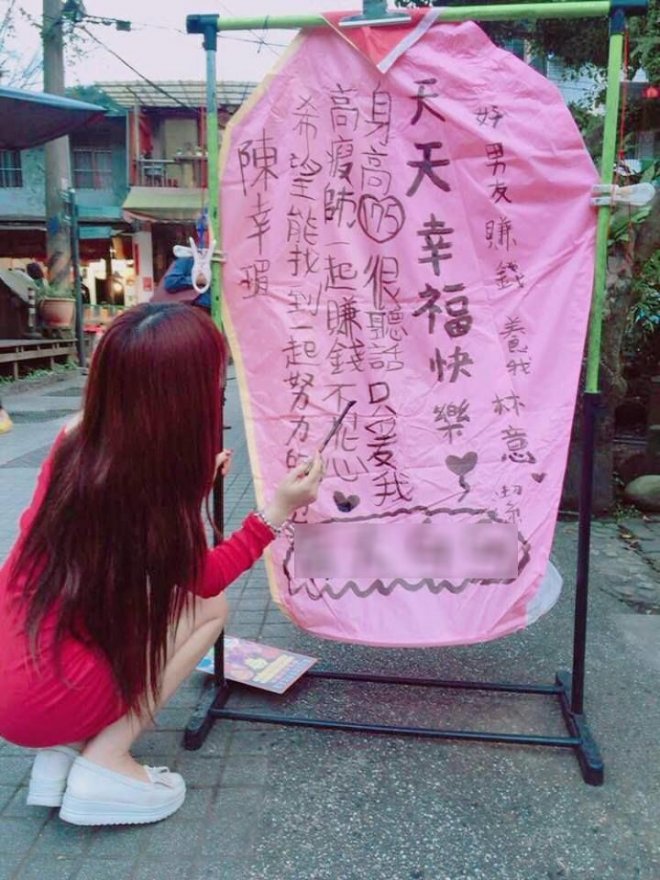 好男友賺錢養我林意潔
天天幸福快樂
身高175很聽話只愛我
高瘦帥一起賺錢不花心
希望能找到一起努力的
陳幸瑕